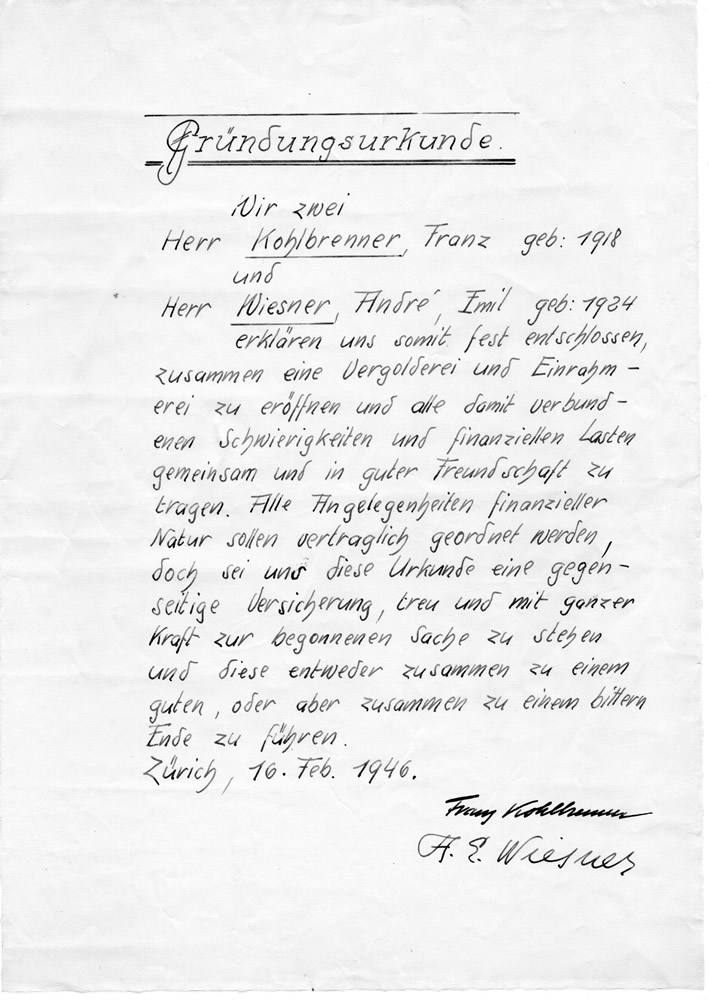 Gründungsurkunde.
Wir zwei
Herr Kohlbrenner, Franz geb: 1918
und
Herr Wiesner, André, Emil geb: 1924
erklären uns somit fest entschlossen,
zusammen eine Vergolderei und Einrahm-
erei zu eröffnen und alle damit verbund-
enen Schwierigkeiten und finanziellen Lasten
gemeinsam und in guter Freundschaft zu
tragen. Alle Angelegenheiten finanzieller
Natur sollen vertraglich geordnet werden,
doch sei uns diese Urkunde eine gegen-
seitige Versicherung, treu und mit ganzer
Kraft zur begonnenen Sache zu stehen
und diese entweder zusammen zu einem
guten, oder aber zusammen zu einem bittern
Ende zu führen.
Zürich, 16. Feb. 1946.
Franz Kohlbrenner
A. E. Wiesner